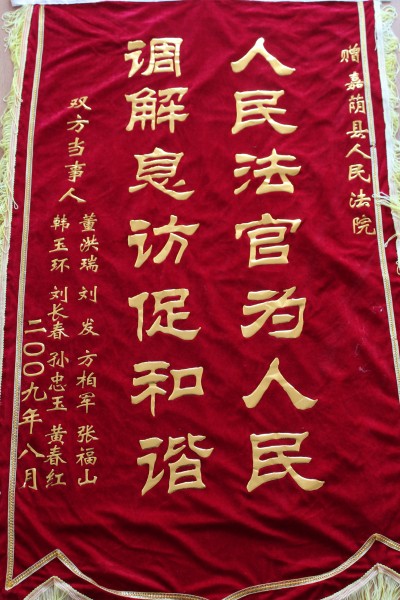 赠嘉荫县人民法院
人民法官为人民
调解息访促和谐
双方当事人
董洪瑞 刘发 方柏军 张福山
韩玉环 刘长春 孙忠玉 黄春红
二〇〇九年八月